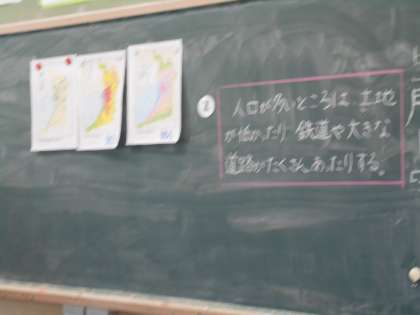 人口が多いところは、土地
が低かったり鉄道や大きな
道路がたくさんあったりする。
月